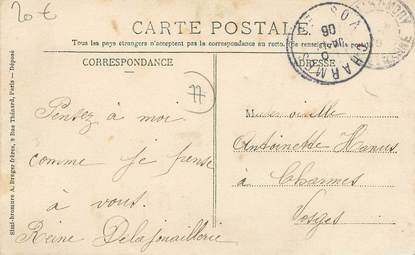 20 €
CARTE POSTALE
Tous les pays étrangers n'acceptent pas la correspondance au recto. (Se renseigner à la poste)
CORRESPONDANCE
ADRESSE
CHARMES
06
77
Pensez à moi
comme je pense
à vous.
Reine Delajoaillerie
Mademoiselle
Antoinette Hanus
à Charmes
Vosges
Simil-bromure A. Breger frères, 9 Rue Thénard, Paris — Déposé